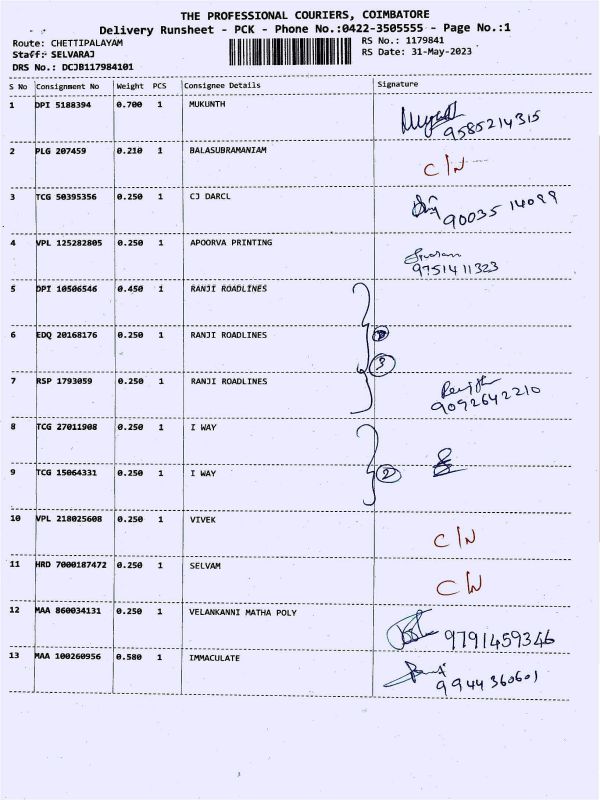 THE PROFESSIONAL COURIERS, COIMBATORE
Delivery Runsheet - PCK - Phone No.:0422-3505555 - Page No.:1
Route: CHETTIPALAYAM
RS No.: 1179841
Staff: SELVARAJ
RS Date: 31-May-2023
DRS No.: DCJB117984101
S No Consignment No Weight PCS Consignee Details Signature
1 DPI 5188394 0.700 1 MUKUNTH
9585214315
2 PLG 207459 0.210 1 BALASUBRAMANIAM
C/N
3 TCG 50395356 0.250 1 CJ DARCL
90035 14099
4 VPL 125282805 0.250 1 APOORVA PRINTING
9751411323
5 DPI 10506546 0.450 1 RANJI ROADLINES
6 EDQ 20168176 0.250 1 RANJI ROADLINES
3
7 RSP 1793059 0.250 1 RANJI ROADLINES
9092642210
8 TCG 27011908 0.250 1 I WAY
9 TCG 15064331 0.250 1 I WAY
2
10 VPL 218025608 0.250 1 VIVEK
C/N
11 HRD 7000187472 0.250 1 SELVAM
C/N
12 MAA 860034131 0.250 1 VELANKANNI MATHA POLY
9791459346
13 MAA 100260956 0.580 1 IMMACULATE
9944360601